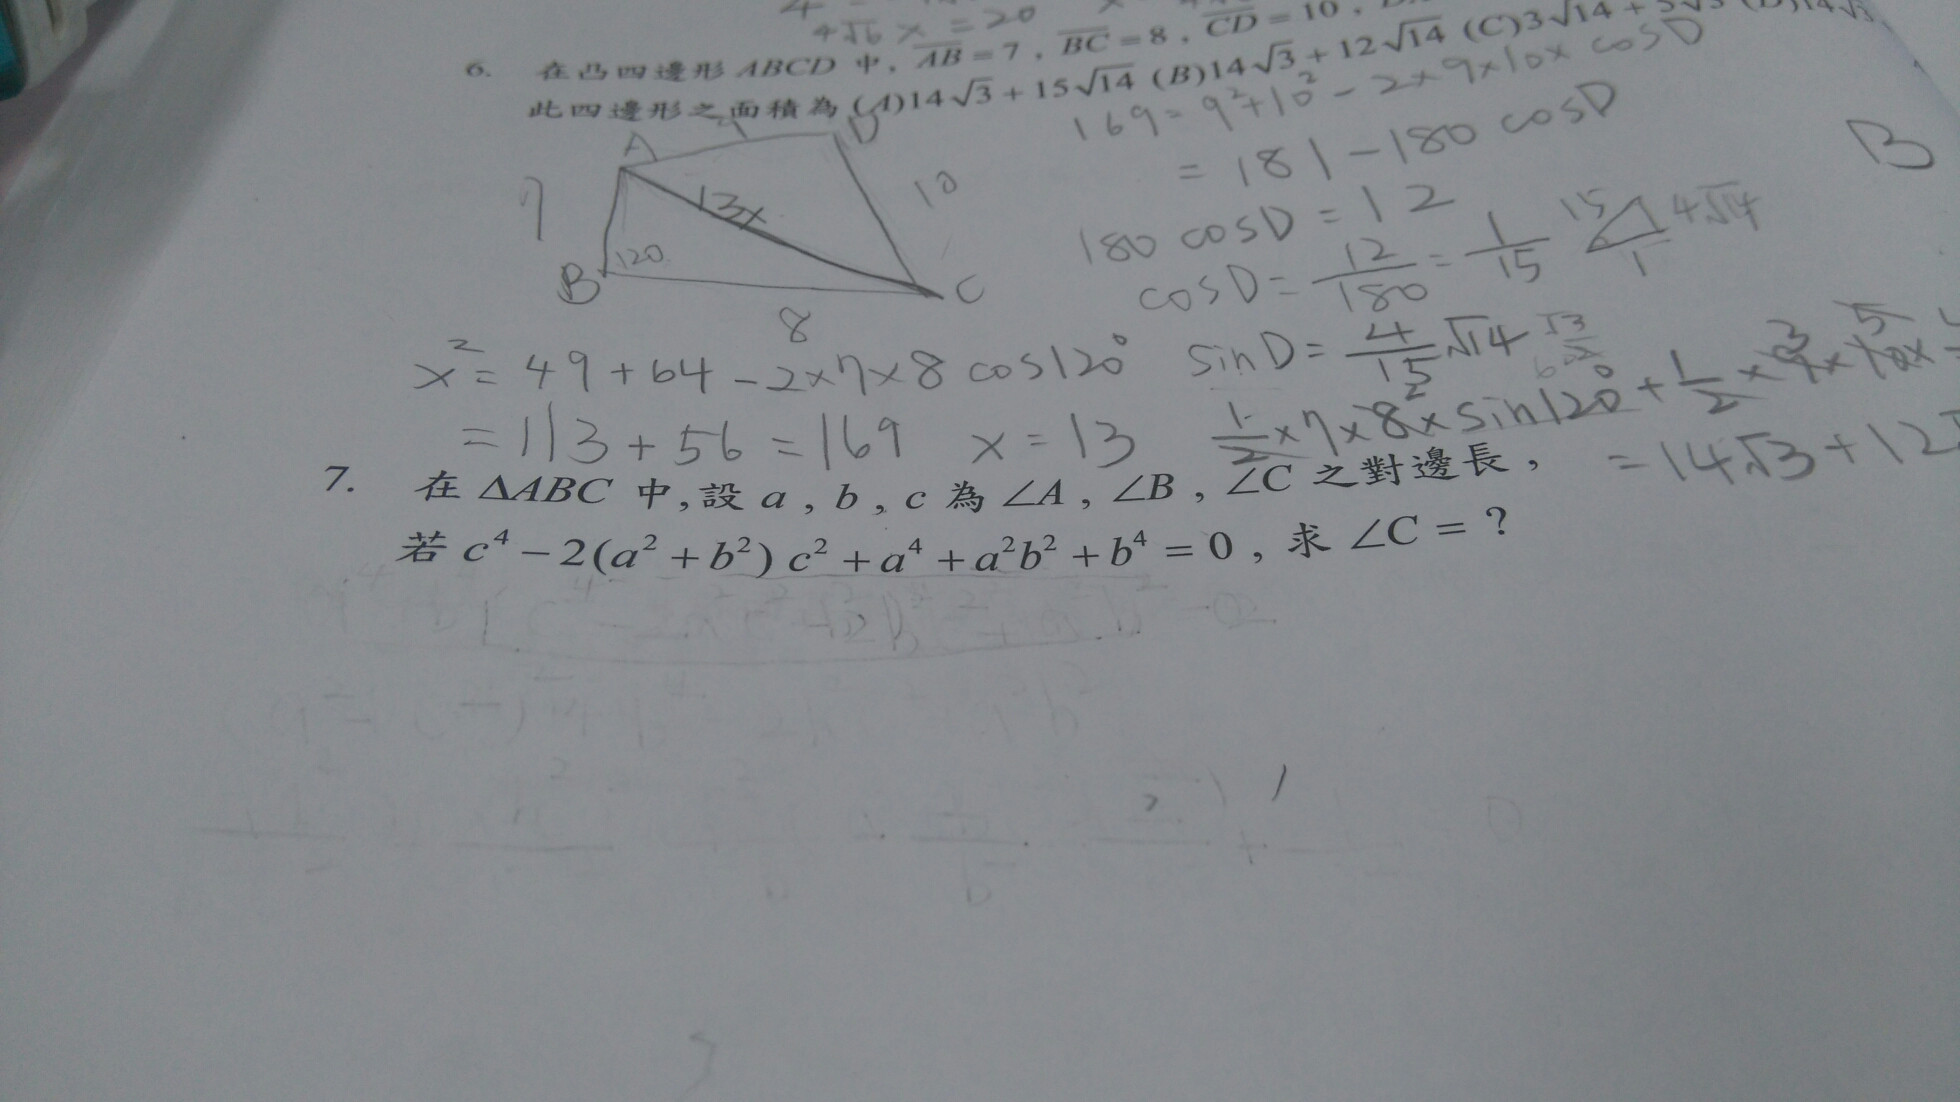 4√6 x = 20
6. 在凸四邊形 ABCD 中，AB = 7，BC = 8，CD = 10，
此四邊形之面積為 (A)14√3 + 15√14 (B)14√3 + 12√14 (C)3√14 +
A D
7 13x 10
B 120 C
8
169 = 9²+10² - 2×9×10× cosD
= 181 - 180 cosD
B
180 cosD = 12
cosD = 12/180 = 1/15
15 4√14
1
sinD = 4/15 √14
x² = 49 + 64 - 2×7×8 cos120°
= 113 + 56 = 169 x = 13
1/2 ×7×8×sin120° + 1/2 × 9×10×
= 14√3 + 12
7. 在 ΔABC 中,設 a , b , c 為 ∠A , ∠B , ∠C 之對邊長，
若 c⁴ − 2(a² + b²) c² + a⁴ + a²b² + b⁴ = 0 , 求 ∠C = ?